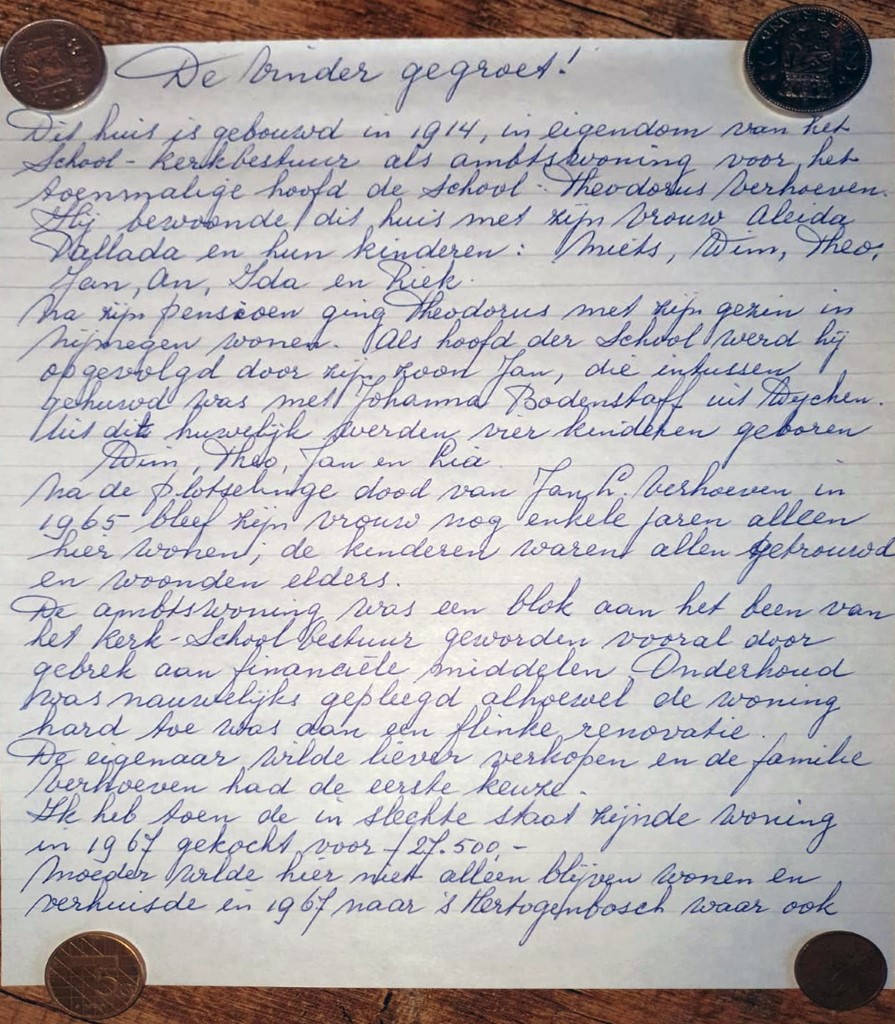 De Vinder gegroet!
Dit huis is gebouwd in 1914, in eigendom van het
School-kerkbestuur als ambtswoning voor het
toenmalige hoofd de School - Theodorus Verhoeven.
Hij bewoonde dit huis met zijn vrouw Aleida
Pallada en hun kinderen: Miets, Wim, Theo,
Jan, An, Ida en Riek.
Na zijn pensioen ging Theodorus met zijn gezin in
Nijmegen wonen. Als hoofd der School werd hij
opgevolgd door zijn zoon Jan, die intussen
gehuwd was met Johanna Bodenstaff uit Wychen.
Uit dit huwelijk werden vier kinderen geboren
Wim, Theo, Jan en Ria.
Na de plotselinge dood van Jan Verhoeven in
1965 bleef zijn vrouw nog enkele jaren alleen
hier wonen, de kinderen waren allen getrouwd
en woonden elders.
De ambtswoning was een blok aan het been van
het kerk-School bestuur geworden vooral door
gebrek aan financiële middelen. Onderhoud
was nauwelijks gepleegd alhoewel de woning
hard toe was aan een flinke renovatie.
De eigenaar wilde liever verkopen en de familie
Verhoeven had de eerste keuze.
Ik heb toen de in slechte staat zijnde woning
in 1967 gekocht voor f 27.500,-
Moeder wilde hier niet alleen blijven wonen en
verhuisde in 1967 naar 's Hertogenbosch waar ook
5